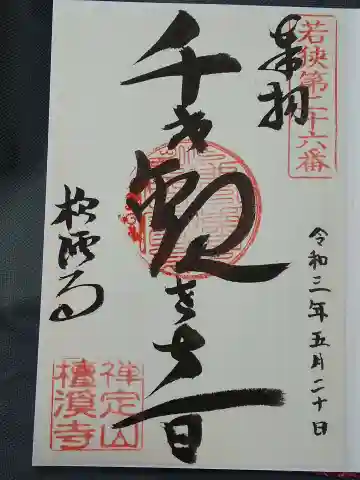 若狭第二十六番
奉拝
令和三年五月二十日
千手観世音
檀渓寺
禅定山
檀渓寺